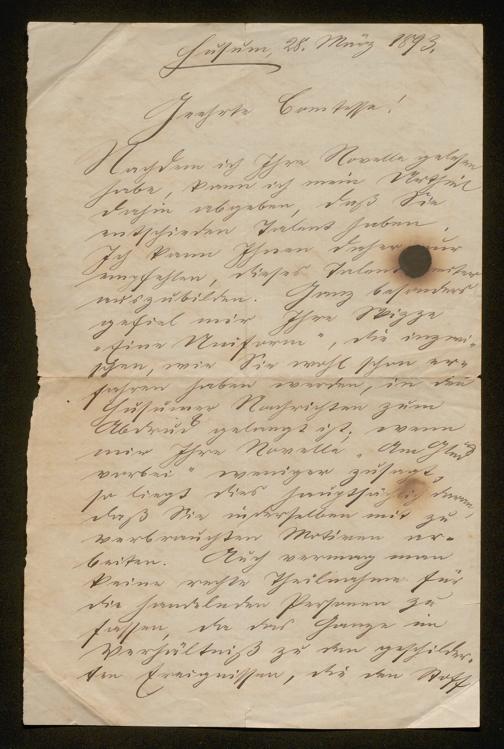 Husum, 28. März 1893.
Geehrte Comtesse!
Nachdem ich Ihre Novelle gelesen
habe, kann ich mein Urtheil
dahin abgeben, daß Sie
entschieden Talent haben.
Ich kann Ihnen daher nur
empfehlen, dieses Talent weiter
auszubilden. Ganz besonders
gefiel mir Ihre Skizze
„Eine Uniform", die inzwi-
schen, wie Sie wohl schon er-
fahren haben werden, in den
Husumer Nachrichten zum
Abdruck gelangt ist; wenn
mir Ihre Novelle „Am Glück
vorbei" weniger zusagt,
so liegt dies hauptsächlich daran
daß Sie in derselben mit zu
verbrauchten Motiven ar-
beiten. Auch vermag man
keine rechte Theilnahme für
die handelnden Personen zu
fassen, da das Ganze im
Verhältniß zu den geschilder-
ten Ereignissen, die den Stoff